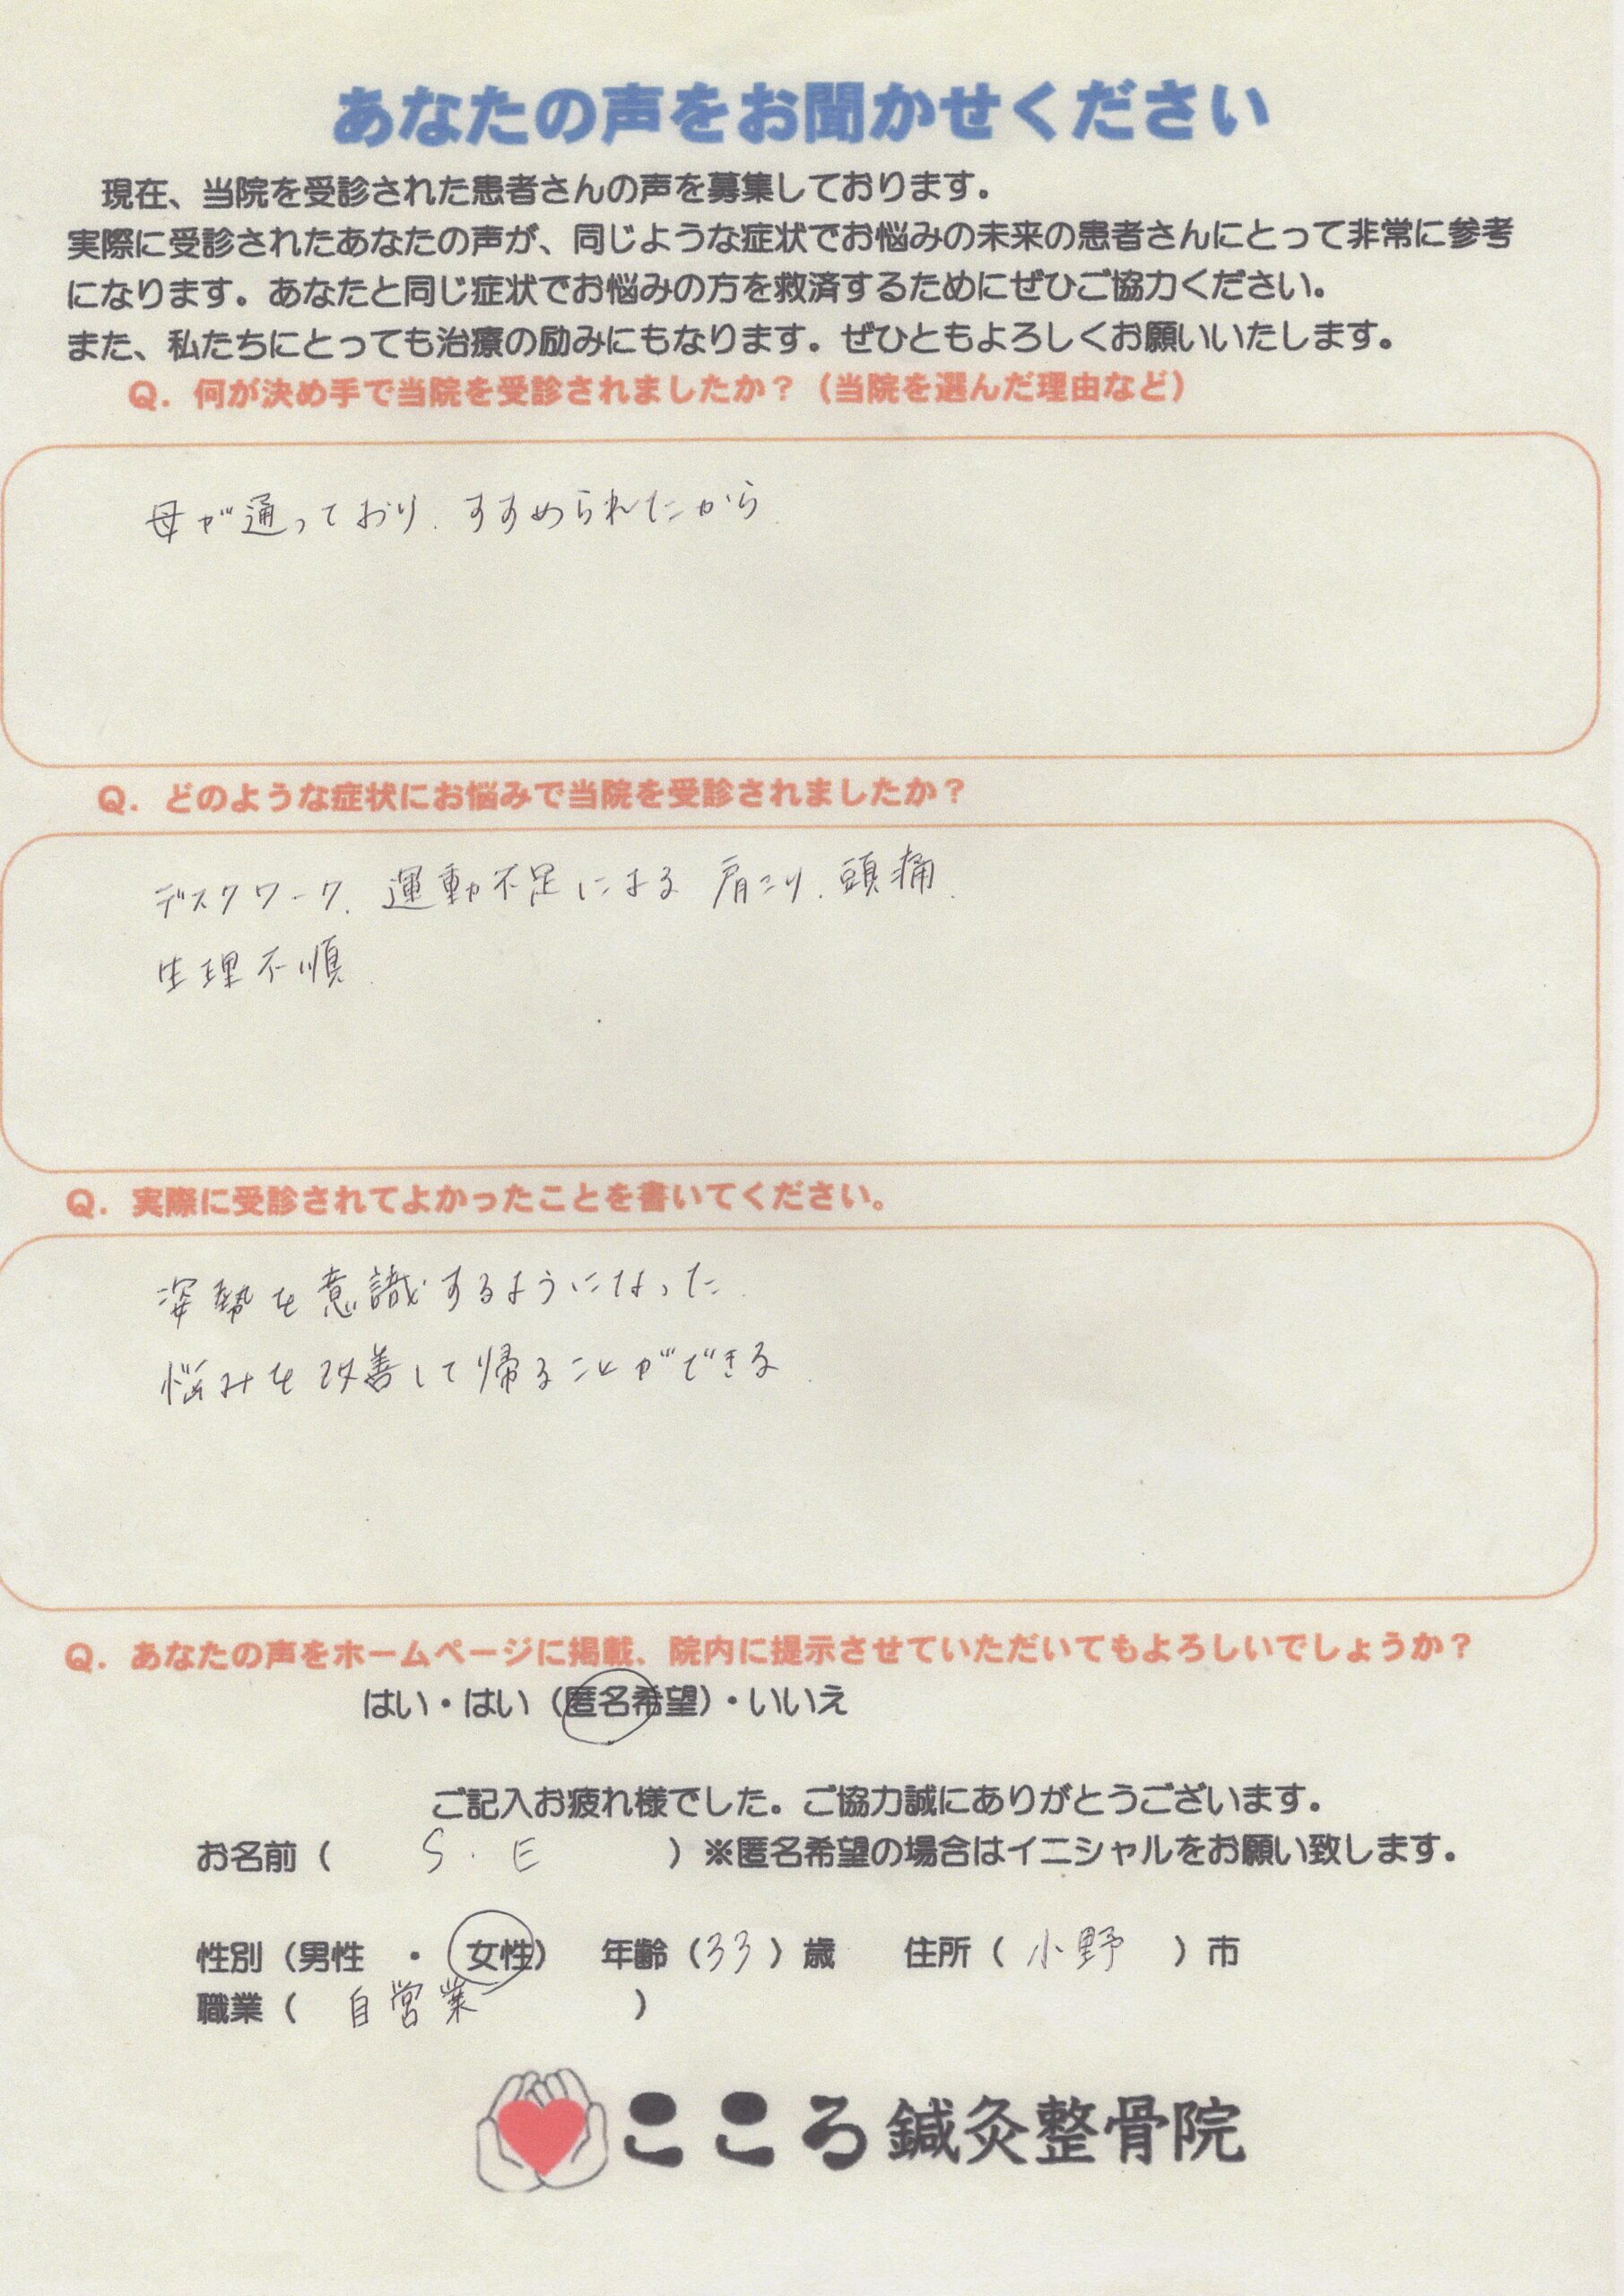 あなたの声をお聞かせください
現在、当院を受診された患者さんの声を募集しております。
実際に受診されたあなたの声が、同じような症状でお悩みの未来の患者さんにとって非常に参考
になります。あなたと同じ症状でお悩みの方を救済するためにぜひご協力ください。
また、私たちにとっても治療の励みにもなります。ぜひともよろしくお願いいたします。
Q．何が決め手で当院を受診されましたか？（当院を選んだ理由など）
母が通っており、すすめられたから.
Q．どのような症状にお悩みで当院を受診されましたか？
デスクワーク、運動不足による 肩こり、頭痛、
生理不順.
Q．実際に受診されてよかったことを書いてください。
姿勢を意識するようになった.
悩みを改善して帰ることができる.
Q．あなたの声をホームページに掲載、院内に提示させていただいてもよろしいでしょうか？
はい・はい（匿名希望）・いいえ
ご記入お疲れ様でした。ご協力誠にありがとうございます。
お名前（ S . E ）※匿名希望の場合はイニシャルをお願い致します。
性別（男性 ・ 女性） 年齢（33）歳 住所（ 小野 ）市
職業（ 自営業 ）
こころ鍼灸整骨院